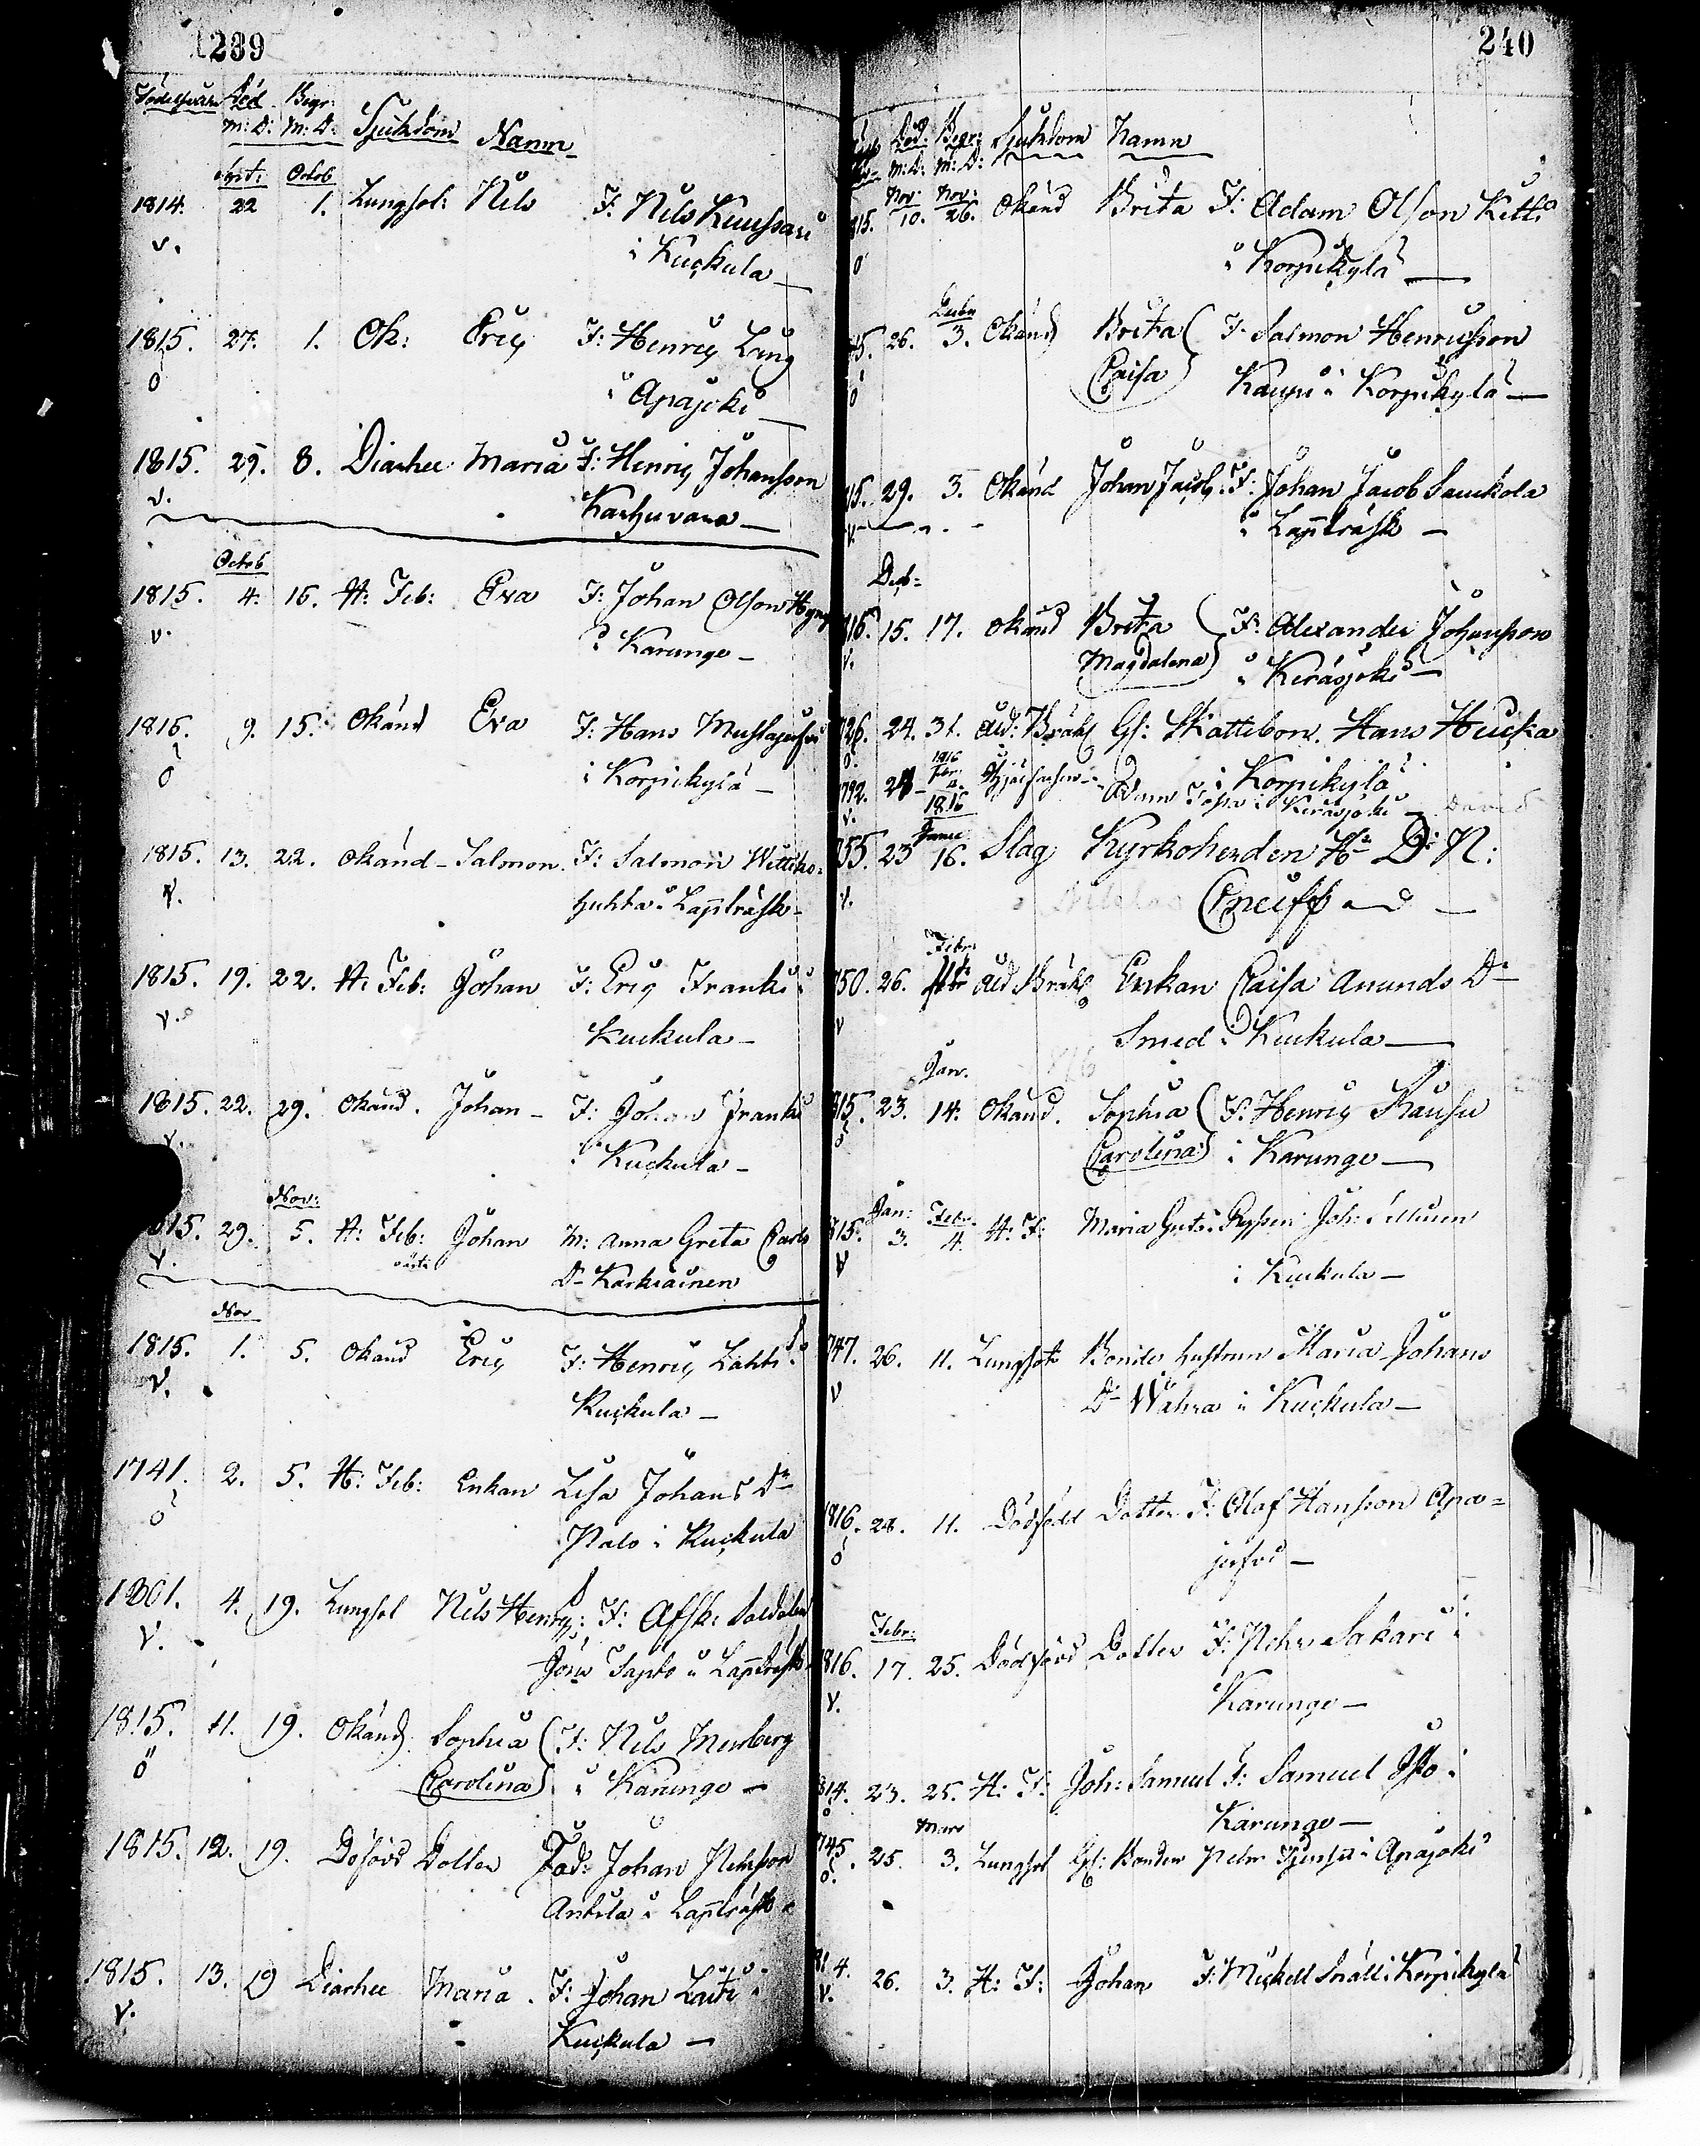 1239
Födelseår Död Begr: Sjukdom Namn
M: D: M: D:
Sept: Octob
1814. 22 1. Lungsot: Nils F: Nils Kuusari
v. i Kuckula
1815. 27. 1. Ok: Eric F: Henric Lang
ö i Apajoki
1815. 29. 8. Diarhee Maria F: Henric Johansson
v. Karhuvara
Octob
1815. 4. 15. H: Feb: Eva F: Johan Olsson
v. i Karungo
1815. 9. 15. Okänd Eva F: Hans
ö i Korpikylä
1815. 13. 22. Okänd Salmon F: Salmon Wittiko=
v. huhta i Lappträsk
1815. 19. 22. H. Feb: Johan F: Eric Franki i
v. Kuckula
1815. 22. 29. Okänd. Johan F: Johan Franki
v. i Kuckula
Nov:
1815. 29. 5. H: Feb: Johan M: Anna Greta Carls
v. oäkta D:r Karhiainen
Nov
1815. 1. 5. Okänd Eric F: Henric Lahti i
v. Kuckula
1741. 2. 5. H: Feb: Enkan Lisa Johans D:r
ö Palo i Kuckula
1801. 4. 19. Lungsot Nils Henric: F: Afsk: Soldaten
v. Tapio i Lappträsk
1815. 11. 19. Okänd Sophia F: Nils Menberg
ö Carolina i Karungo
1815. 12. 19. Dotter Fad: Johan Pehrsson
Antila i Lappträsk
1815. 13. 19 Diarhee Maria F: Johan Laiti i
v. Kuckula
240
Död: Begr: Sjukdom Namn
M: D: M: D:
Nov: Nov:
1815. 10. 26. Okänd Brita F: Adam Olsson
ö i Korpikylä
Decbr
1815. 26. 3. Okänd Brita F: Salmon Henricsson
ö Caisa Kaupi i Korpikylä
1815. 29. 3. Okänd Johan Jacob F: Johan Jacob Sauckola
v. i Lappträsk
Decb:
1815. 15. 17. Okänd Brita F: Alexander Johansson
v. Magdalena i Keräsjoki
1726. 24. 31. Åld: Bräckl Gl: Skattebon. Hans Hucka
ö. i Korpikylä
1816
Febr:
1792. 24 Adam i Keräsjoki David
v. 1816
Janu
1755. 23 16. Slag Kyrkoherden H:r D:r N:
v. Cneiff
Febr:
1750. 26. Åld Bräckl Enkan Caisa Anunds D:r
v Smed i Kuckula
Jan. 816
1815. 23. 14. Okänd. Sophia F: Henric Rausu
ö Carolina i Karungo
Jan: Febr:
1815. 3. 4. H: F: Maria Greta Joh:
v i Kuckula
1747. 26. 11. Lungsot Bonde hustrun Maria Johans
v D:r Währa i Kuckula
1816. 28. 11. Dödfödd Dotter F: Olof Hansson Apa=
ö
Febr:
1816. 17. 25. Dödfödd Dotter F: Pehr Sakari i
v. Karungo
1814. 23. 25. H: F: Joh: Samuel F: Samuel i
ö Karungo
Mars
1745. 25. 3. Lungsot Gl: Bonden Pehr i Apajoki
ö.
1814. 26. 3. H: F: Johan F: Mickell i Korpikylä
v.